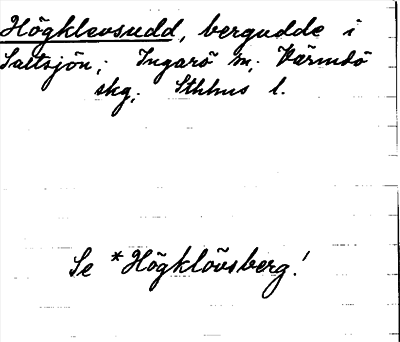 Högklevsudd, bergudde i
Saltsjön; Ingarö sn; Värmdö
skg; Sthlms l.
Se *Högklövsberg!